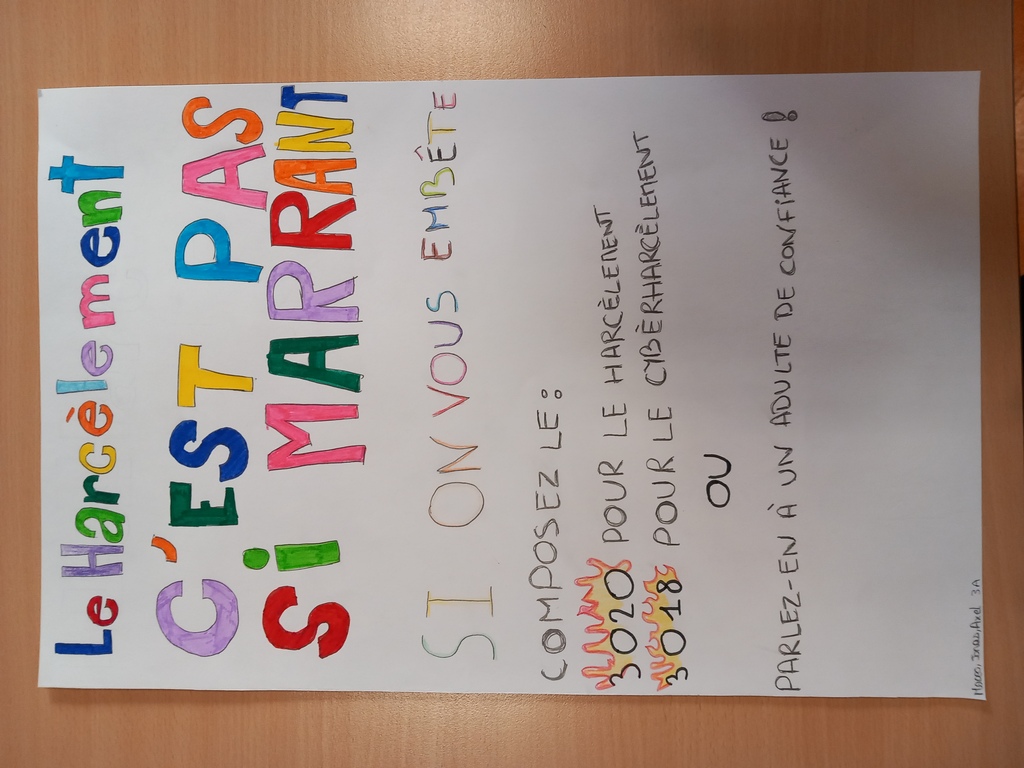 Le Harcèlement
C'EST PAS
Si MARRANT
SI ON VOUS EMBÊTE
COMPOSEZ LE :
3020 POUR LE HARCÈLEMENT
3018 POUR LE CYBÈRHARCÈLEMENT
OU
PARLEZ-EN À UN ADULTE DE CONFIANCE !
Jonas, Axel 3A